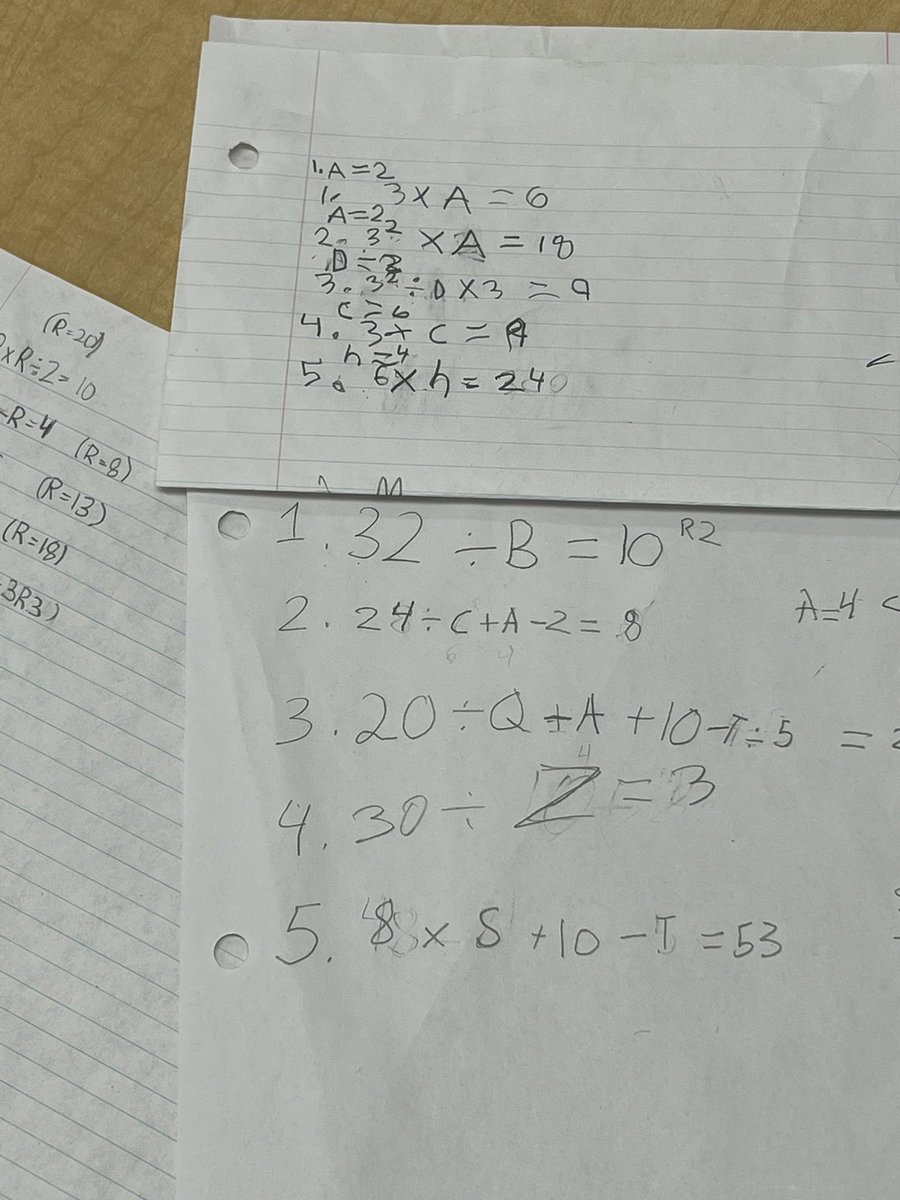 1. A=2
1. 3 × A = 6
A=2
2. 3² × A = 18
D=3
3. 3² ÷ D × 3 = 9
C=6
4. 3+ C = 9
h=4
5. 6 × h = 240
(R=20)
×R÷2=10
-R=4 (R=8)
(R=13)
(R=18)
3R3)
1. 32 ÷ B = 10 R2
2. 24 ÷ C + A - 2 = 8
6 4
A=4
3. 20 ÷ Q + A + 10 - T ÷ 5 =
4
4. 30 ÷ Z = 3
5. 8 × S + 10 - T = 53